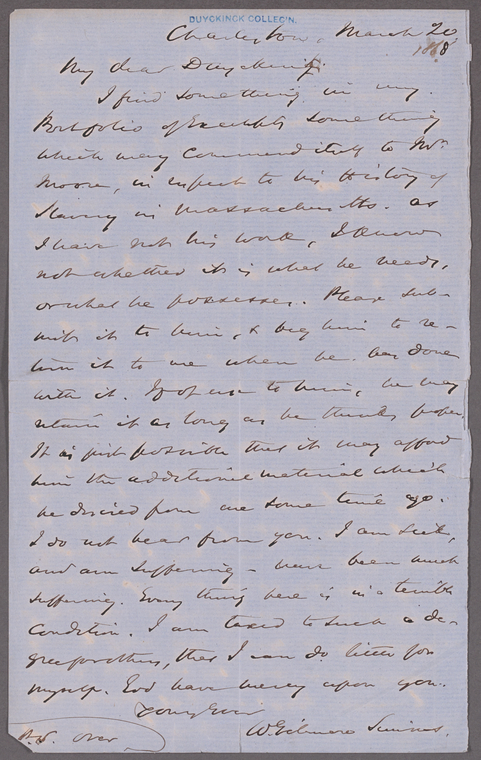 DUYCKINCK COLLEC'N.
Charleston, March 20
1868
My dear Duyckinck.
I find something in my
Portfolio of Excerpts something
which may commend itself to Mr.
Moore, in respect to his History of
Slavery in Massachusetts. As
I have not his work, I know
not whether it is what he needs,
or what he possesses. Please sub-
mit it to him, & beg him to re-
turn it to me when he has done
with it. If of use to him, he may
retain it as long as he thinks proper.
It is just possible that it may afford
him the additional material which
he desired from me some time ago.
I do not hear from you. I am sick,
and am suffering - have been much
suffering. Every thing here is in a terrible
condition. I am taxed to such a de-
gree for others, that I can do little for
myself. God have mercy upon you.
Yours Ever
W. Gilmore Simms.
P.S. Over